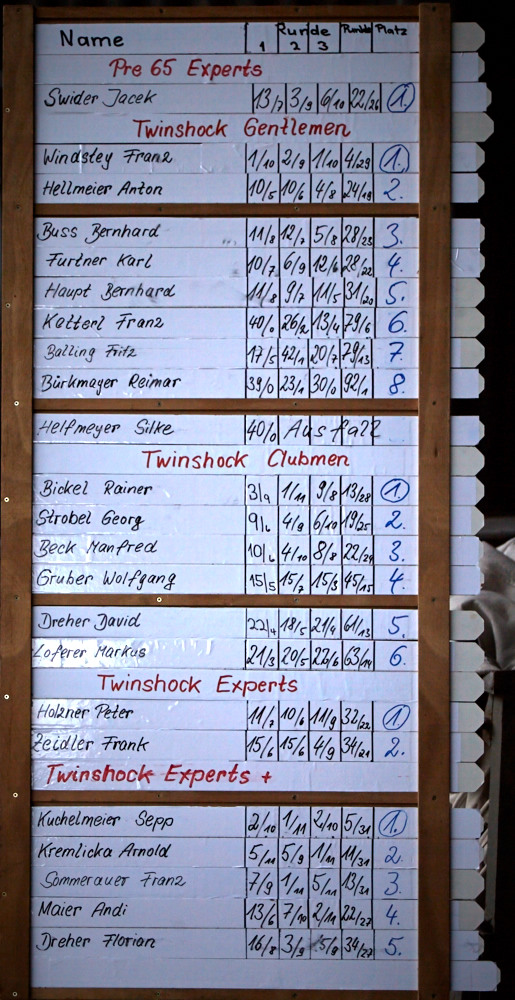 Name Runde Punkte Platz
1 2 3
Pre 65 Experts
Swider Jacek 13/7 3/9 6/10 22/26 1.
Twinshock Gentlemen
Windstey Franz 1/10 2/9 1/10 4/29 1.
Hellmeier Anton 10/5 10/6 4/8 24/19 2.
Buss Bernhard 11/8 12/7 5/8 28/23 3.
Furtner Karl 10/7 6/9 12/6 28/22 4.
Haupt Bernhard 11/8 9/7 11/5 31/20 5.
Katterl Franz 40/0 26/2 13/4 79/6 6.
Balling Fritz 17/5 42/1 20/7 79/13 7.
Bürkmayer Reimar 39/0 23/1 30/0 92/1 8.
Helfmeyer Silke 40/0 Ausfall
Twinshock Clubmen
Bickel Rainer 3/9 1/11 9/8 13/28 1.
Strobel Georg 9/6 4/9 6/10 19/25 2.
Beck Manfred 10/6 4/10 8/8 22/24 3.
Gruber Wolfgang 15/5 15/7 15/3 45/15 4.
Dreher David 22/4 18/5 21/4 61/13 5.
Loferer Markus 21/3 20/5 22/6 63/14 6.
Twinshock Experts
Holzner Peter 11/7 10/6 11/9 32/22 1.
Zeidler Frank 15/6 15/6 4/9 34/21 2.
Twinshock Experts +
Kuchelmeier Sepp 2/10 1/11 2/10 5/31 1.
Kremlicka Arnold 5/11 5/9 1/11 11/31 2.
Sommerauer Franz 7/9 1/11 5/11 13/31 3.
Maier Andi 13/6 7/10 2/11 22/27 4.
Dreher Florian 16/8 3/9 5/9 34/27 5.